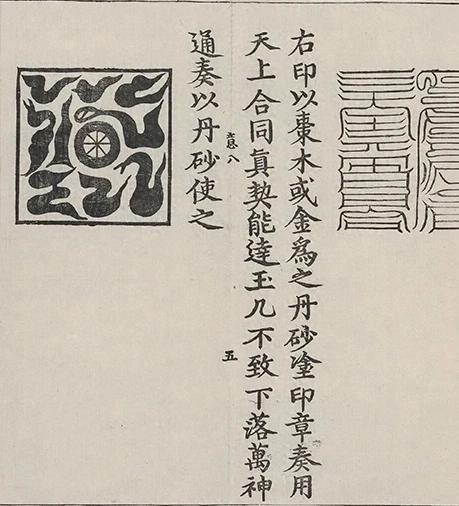 右印以棗木或金爲之丹砂塗印章奏用
天上合同眞契能達玉几不致下落萬神
八
五
通奏以丹砂使之